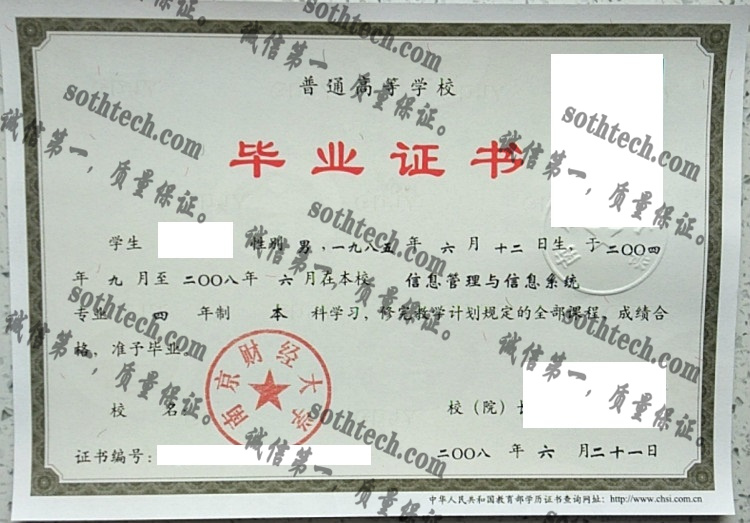 普通高等学校
毕业证书
学生 性别 男，一九八五年 六 月 十二 日生，于二〇〇四
年 九 月至 二〇〇八 年 六 月在本校 信息管理与信息系统
专业 四 年制 本 科学习，修完教学计划规定的全部课程，成绩合
格，准予毕业
南京财经大学
校 名
校（院）长
二〇〇八 年 六 月二十一日
证书编号：
中华人民共和国教育部学历证书查询网址：http://www.chsi.com.cn
sothtech.com
诚信第一，质量保证。
sothtech.com
诚信第一，质量保证。
sothtech.com
诚信第一，质量保证。
sothtech.com
诚信第一，质量保证。
sothtech.com
诚信第一，质量保证。
sothtech.com
诚信第一，质量保证。
sothtech.com
诚信第一，质量保证。